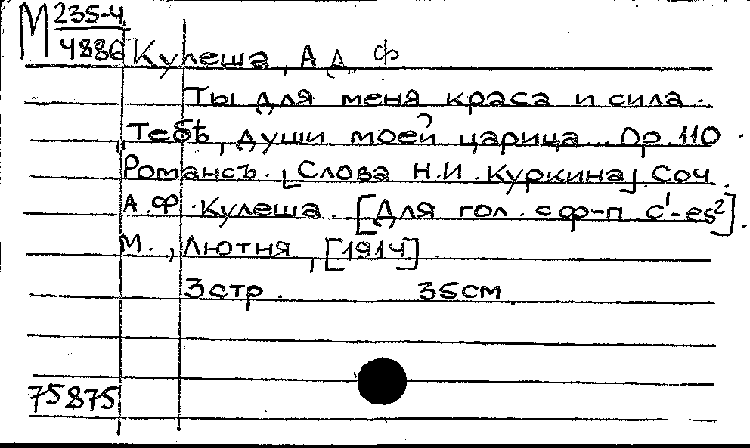 М 235-4
4886
Кулеша, А Ф
Ты для меня краса и сила.
Тебѣ, души моей царица... Op. 110.
Романсъ. [Слова Н.И. Куркина] Соч.
А.Ф. Кулеша. [Для гол. с ф-п. c¹-es²].
М., Лютня, [1914]
3 стр. 35см.
75875